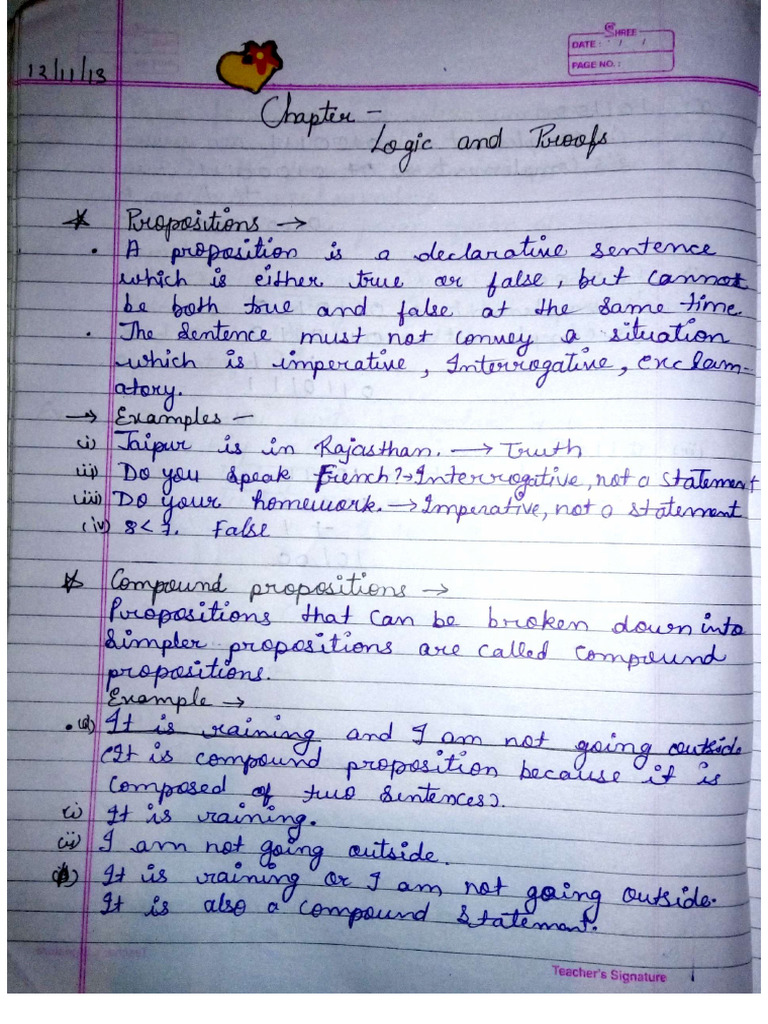 SHREE
DATE : / /
PAGE NO. :
12/11/13
Chapter -
Logic and Proofs
* Propositions →
• A proposition is a declarative sentence
which is either true or false, but cannot
be both true and false at the same time.
• The sentence must not convey a situation
which is imperative, Interrogative, exclam-
atory.
→ Examples -
(i) Jaipur is in Rajasthan. → Truth
(ii) Do you speak French? → Interrogative, not a statement
(iii) Do your homework. → Imperative, not a statement
(iv) 8<7. False
* Compound propositions →
Propositions that can be broken down into
simpler propositions are called compound
propositions.
Example →
• (a) It is raining and I am not going outside.
(It is compound proposition because it is
composed of two sentences).
(i) It is raining.
(ii) I am not going outside.
(b) It is raining or I am not going outside.
It is also a compound statement.
Teacher's Signature